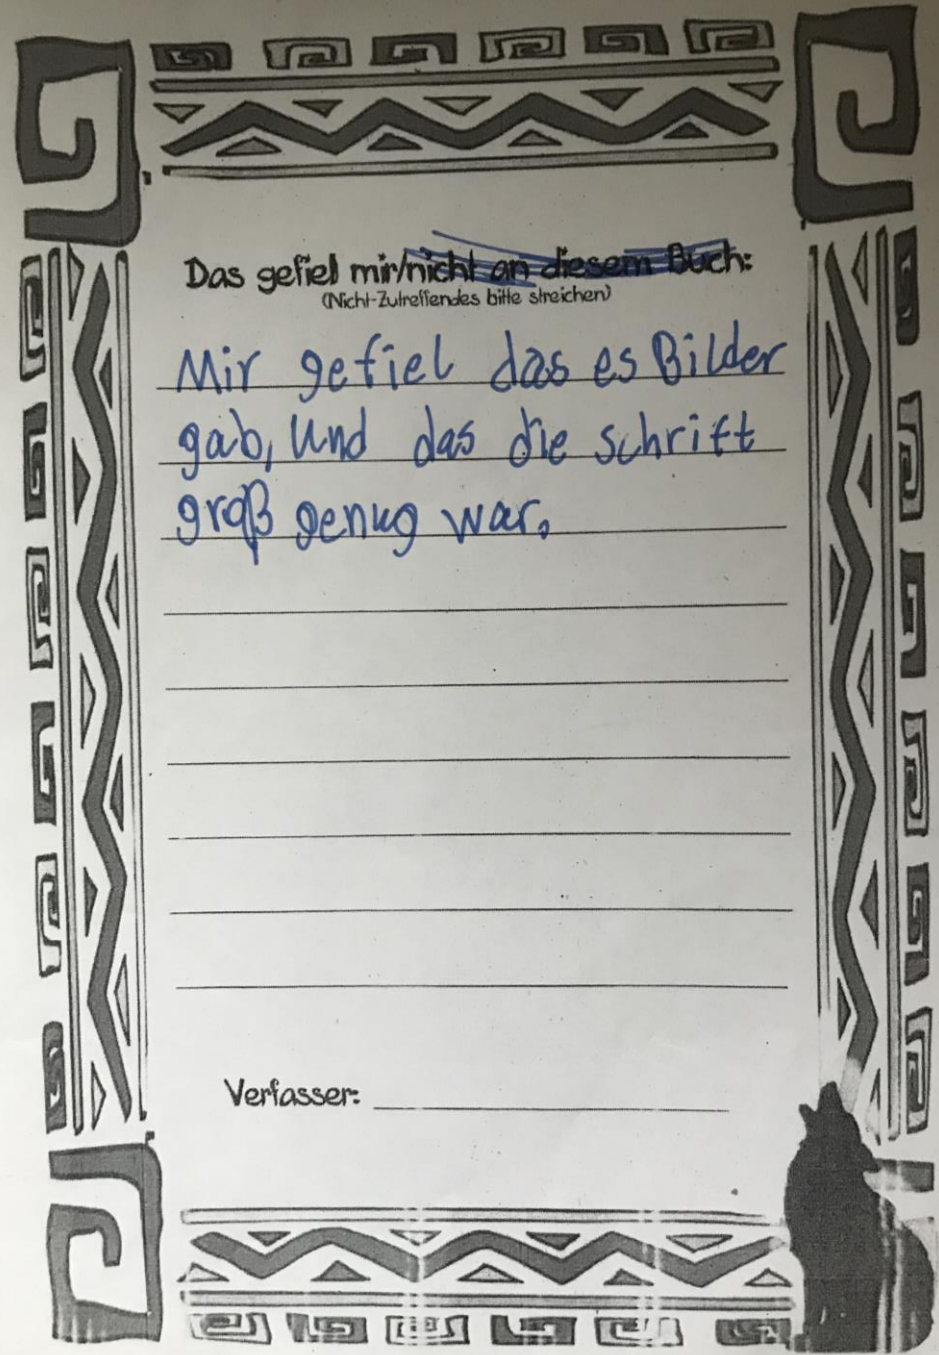 Das gefiel mir/nicht an diesem Buch:
(Nicht-Zutreffendes bitte streichen)
Mir gefiel das es Bilder
gab, Und das die schrift
groß genug war.
Verfasser: